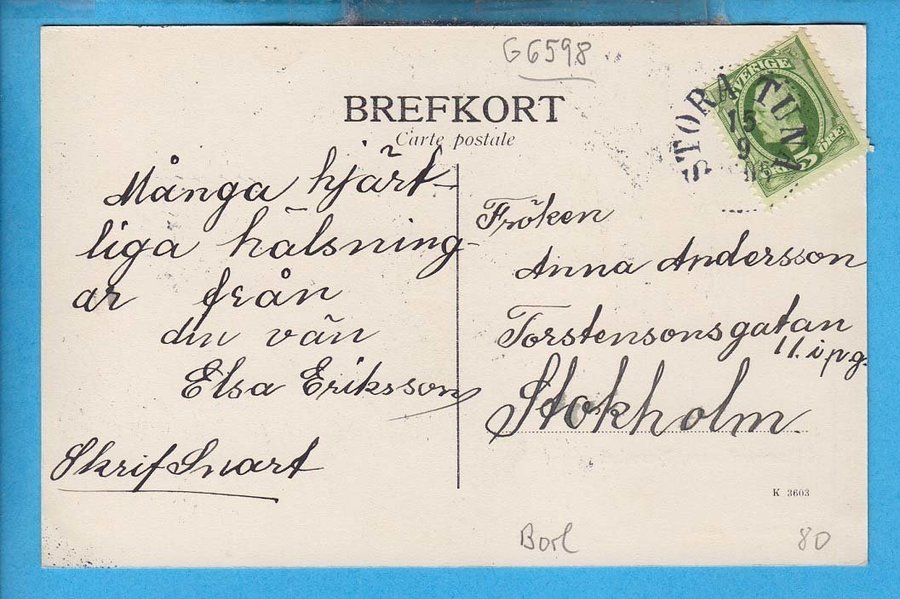 G6598
BREFKORT
Carte postale
SVERIGE
5 ÖRE
STORA TUNA
15
9
Många hjärt-
liga hälsning-
ar från
din vän
Elsa Eriksson
Skrif Snart
Fröken
Anna Andersson
Torstensonsgatan
11. i. p. g.
Stokholm.
K 3603
Borl
80